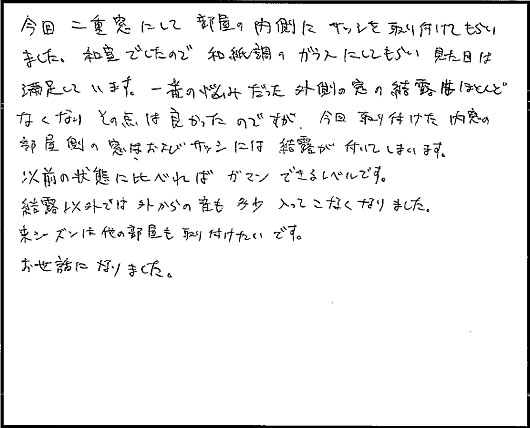 今回 二重窓にして 部屋の内側に サッシを取り付けてもらい
ました。和室でしたので 和紙調のガラスにしてもらい 見た目は
満足しています。一番の悩みだった 外側の窓の結露はほとんど
なくなり その点は良かったのですが、今回 取り付けた 内窓の
部屋側の窓およびサッシには 結露が付いてしまいます。
以前の状態に比べれば ガマンできるレベルです。
結露以外では 外からの音も 多少 入ってこなくなりました。
来シーズンは他の部屋も 取り付けたいです。
お世話になりました。